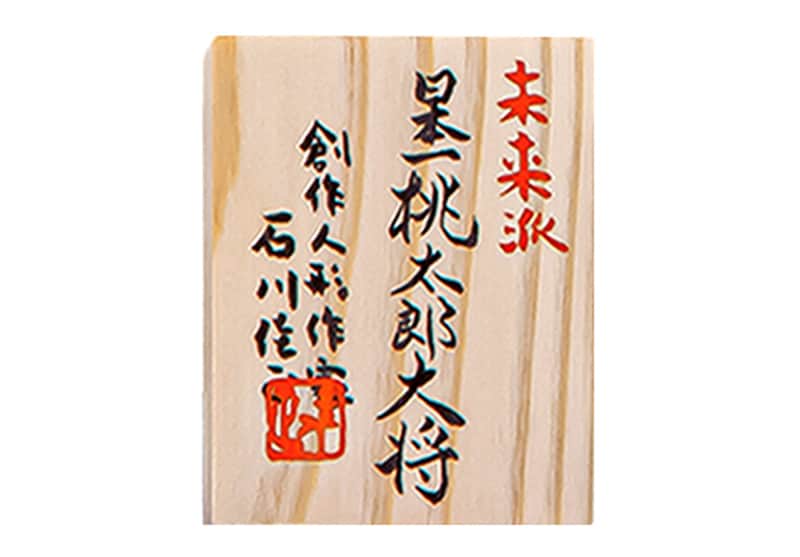 未来派
日本一桃太郎大将
創作人形作家
石川佳